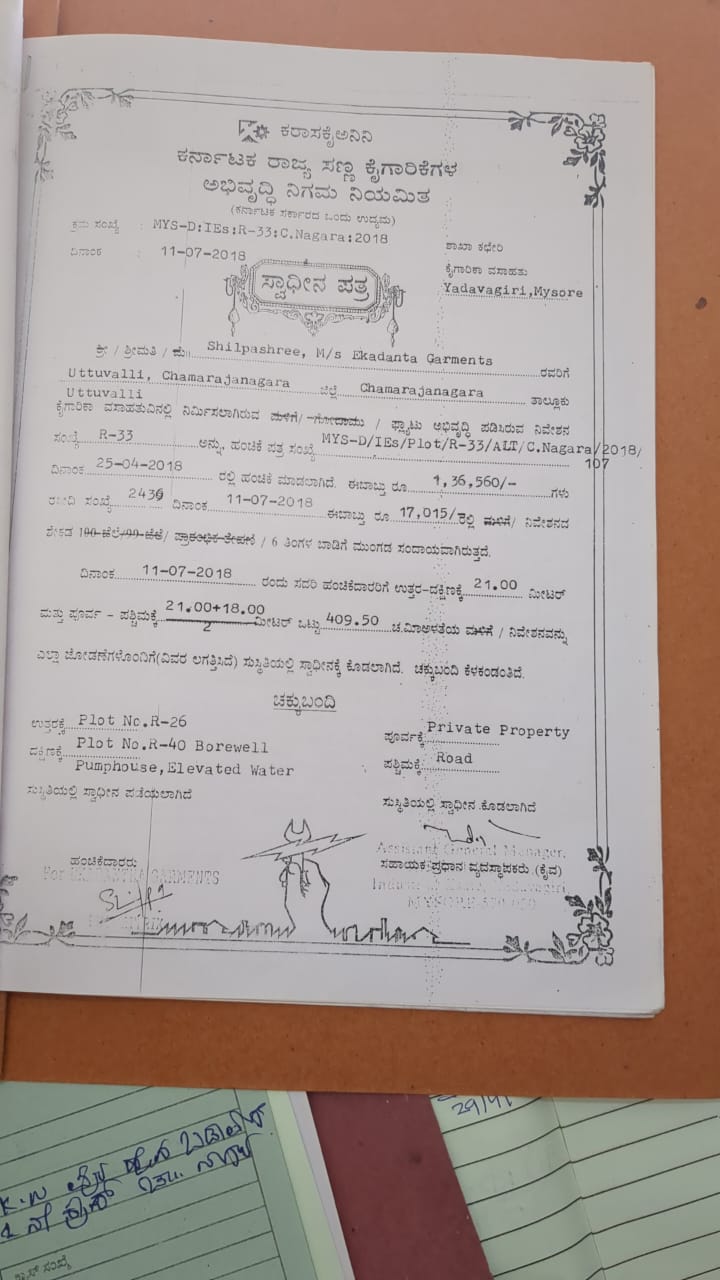 ಕರಾಸಕೈಅನಿನಿ
ಕರ್ನಾಟಕ ರಾಜ್ಯ ಸಣ್ಣ ಕೈಗಾರಿಕೆಗಳ
ಅಭಿವೃದ್ಧಿ ನಿಗಮ ನಿಯಮಿತ
(ಕರ್ನಾಟಕ ಸರ್ಕಾರದ ಒಂದು ಉದ್ಯಮ)
ಕ್ರಮ ಸಂಖ್ಯೆ : MYS-D:IEs:R-33:C.Nagara:2018
ಶಾಖಾ ಕಛೇರಿ
ದಿನಾಂಕ : 11-07-2018
ಕೈಗಾರಿಕಾ ವಸಾಹತು
Yadavagiri,Mysore
ಸ್ವಾಧೀನ ಪತ್ರ
ಶ್ರೀ / ಶ್ರೀಮತಿ / ಮೆ॥ Shilpashree, M/s Ekadanta Garments ರವರಿಗೆ
Uttuvalli, Chamarajanagara ಜಿಲ್ಲೆ Chamarajanagara ತಾಲ್ಲೂಕು
Uttuvalli
ಕೈಗಾರಿಕಾ ವಸಾಹತುವಿನಲ್ಲಿ ನಿರ್ಮಿಸಲಾಗಿರುವ ಮಳಿಗೆ / ಗೋದಾಮು / ಫ್ಲಾಟು ಅಭಿವೃದ್ಧಿ ಪಡಿಸಿರುವ ನಿವೇಶನ
ಸಂಖ್ಯೆ R-33 ಅನ್ನು, ಹಂಚಿಕೆ ಪತ್ರ ಸಂಖ್ಯೆ MYS-D/IEs/Plot/R-33/ALT/C.Nagara/2018/
107
ದಿನಾಂಕ 25-04-2018 ರಲ್ಲಿ ಹಂಚಿಕೆ ಮಾಡಲಾಗಿದೆ. ಈಬಾಬ್ತು ರೂ 1,36,560/- ಗಳು
ರಶೀದಿ ಸಂಖ್ಯೆ 2436 ದಿನಾಂಕ 11-07-2018 ಈಬಾಬ್ತು ರೂ 17,015/- ರಲ್ಲಿ ಮಳಿಗೆ / ನಿವೇಶನದ
ಶೇಕಡ 100 ಬೆಲೆ/99 ಬೆಲೆ/ ಪ್ರಾರಂಭಿಕ ಠೇವಣಿ / 6 ತಿಂಗಳ ಬಾಡಿಗೆ ಮುಂಗಡ ಸಂದಾಯವಾಗಿರುತ್ತದೆ.
ದಿನಾಂಕ 11-07-2018 ರಂದು ಸದರಿ ಹಂಚಿಕೆದಾರರಿಗೆ ಉತ್ತರ-ದಕ್ಷಿಣಕ್ಕೆ 21.00 ಮೀಟರ್
ಮತ್ತು ಪೂರ್ವ - ಪಶ್ಚಿಮಕ್ಕೆ 21.00+18.00 ಮೀಟರ್ ಒಟ್ಟು 409.50 ಚ.ಮೀ ಅಳತೆಯ ಮಳಿಗೆ / ನಿವೇಶನವನ್ನು
2
ಎಲ್ಲಾ ಜೋಡಣೆಗಳೊಂದಿಗೆ(ವಿವರ ಲಗತ್ತಿಸಿದೆ) ಸುಸ್ಥಿತಿಯಲ್ಲಿ ಸ್ವಾಧೀನಕ್ಕೆ ಕೊಡಲಾಗಿದೆ. ಚಕ್ಕುಬಂದಿ ಕೆಳಕಂಡಂತಿದೆ.
ಚಕ್ಕುಬಂದಿ
ಉತ್ತರಕ್ಕೆ Plot No.R-26
ಪೂರ್ವಕ್ಕೆ Private Property
ದಕ್ಷಿಣಕ್ಕೆ Plot No.R-40 Borewell
ಪಶ್ಚಿಮಕ್ಕೆ Road
Pumphouse,Elevated Water
ಸುಸ್ಥಿತಿಯಲ್ಲಿ ಸ್ವಾಧೀನ ಪಡೆಯಲಾಗಿದೆ
ಸುಸ್ಥಿತಿಯಲ್ಲಿ ಸ್ವಾಧೀನ ಕೊಡಲಾಗಿದೆ
ಹಂಚಿಕೆದಾರರು
For EKADANTHA GARMENTS
Assistant General Manager,
ಸಹಾಯಕ ಪ್ರಧಾನ ವ್ಯವಸ್ಥಾಪಕರು (ಕೈವ)
Industrial Estate, Yadavagiri
MYSORE-570 020
29/9/
K.N